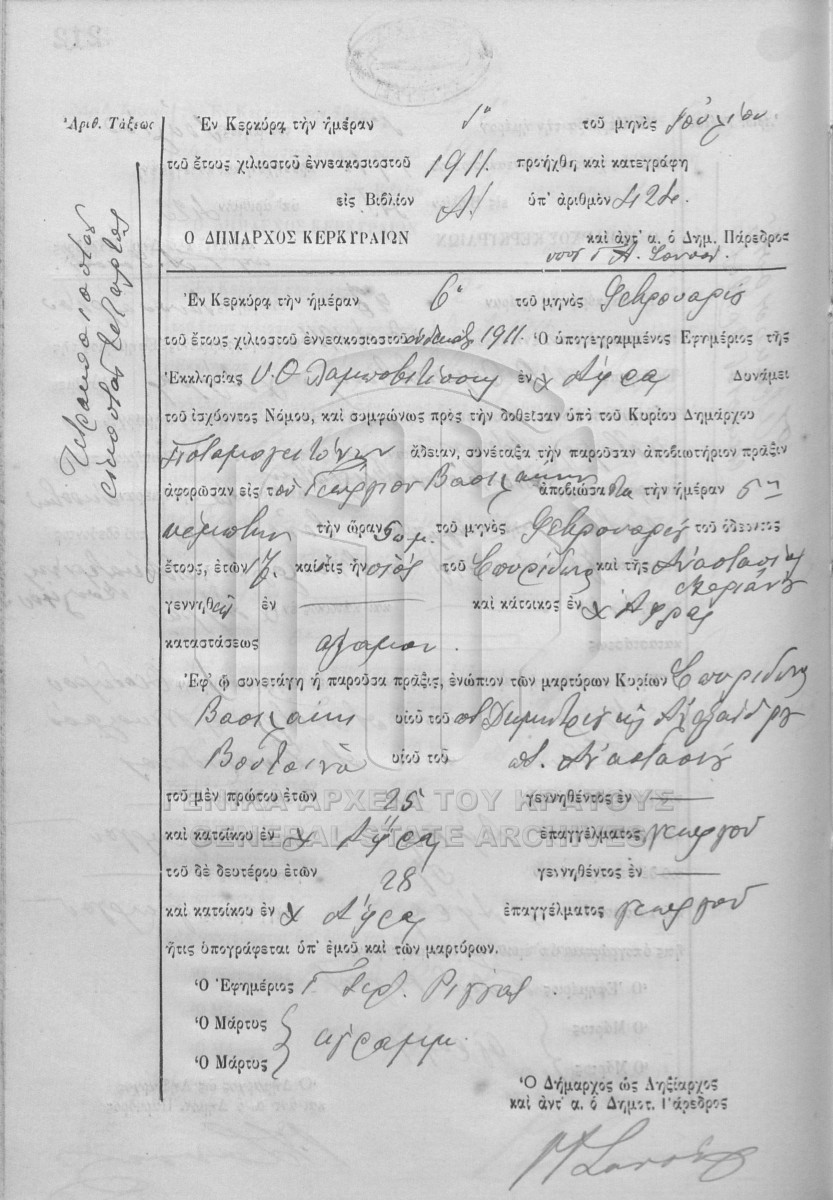 Ἀριθ. Τάξεως
Τετρακοσιοστὸν
εἰκοστὸν τέταρτον
Ἐν Κερκύρᾳ τὴν ἡμέραν 1η τοῦ μηνὸς Ἰουλίου
τοῦ ἔτους χιλιοστοῦ ἐννεακοσιοστοῦ 1911. προήχθη καὶ κατεγράφη
εἰς Βιβλίον Α! ὑπ' ἀριθμὸν 424.
Ο ΔΗΜΑΡΧΟΣ ΚΕΡΚΥΡΑΙΩΝ καὶ ἀντ' α. ὁ Δημ. Πάρεδρος
Ἐν Κερκύρᾳ τὴν ἡμέραν 6η τοῦ μηνὸς Φεβρουαρίου
τοῦ ἔτους χιλιοστοῦ ἐννεακοσιοστοῦ ἑνδεκάτου 1911. Ὁ ὑπογεγραμμένος Ἐφημέριος τῆς
Ἐκκλησίας Υ. Θ Λαμποβιτίσσης ἐν χ Ἄφρα Δυνάμει
τοῦ ἰσχύοντος Νόμου, καὶ συμφώνως πρὸς τὴν δοθεῖσαν ὑπὸ τοῦ Κυρίου Δημάρχου
Ποταμογειτόνων ἄδειαν, συνέταξα τὴν παροῦσαν ἀποβιωτήριον πρᾶξιν
ἀφορῶσαν εἰς τὸν Γεώργιον Βασιλάκην ἀποβιώσαντα τὴν ἡμέραν 5ην
πέμπτην τὴν ὥραν 5 π.μ. τοῦ μηνὸς Φεβρουαρίου τοῦ ὁδεύοντος
ἔτους, ἐτῶν 17. καὶ τις ἦν υἱὸς τοῦ Σπυρίδωνος καὶ τῆς Ἀναστασίας
γεννηθεὶς ἐν — καὶ κάτοικος ἐν χ Ἄφρας
καταστάσεως ἄγαμος.
Ἐφ' ᾧ συνετάγη ἡ παροῦσα πρᾶξις, ἐνώπιον τῶν μαρτύρων Κυρίων Σπυρίδωνος
Βασιλάκη υἱοῦ τοῦ ποτ. Δημητρίου κ Ἀλεξάνδρου
υἱοῦ τοῦ ποτ. Ἀναστασίου
τοῦ μὲν πρώτου ἐτῶν 25 γεννηθέντος ἐν —
καὶ κατοίκου ἐν χ Ἄφρα ἐπαγγέλματος γεωργοῦ
τοῦ δὲ δευτέρου ἐτῶν 28 γεννηθέντος ἐν —
καὶ κατοίκου ἐν χ Ἄφρα ἐπαγγέλματος γεωργοῦ
ἥτις ὑπογράφεται ὑπ' ἐμοῦ καὶ τῶν μαρτύρων.
Ὁ Ἐφημέριος Γ Ἱερ. Ρίγγας.
Ὁ Μάρτυς
ἀγράμμ.
Ὁ Μάρτυς
Ὁ Δήμαρχος ὡς Ληξίαρχος
καὶ ἀντ' α. ὁ Δημοτ. Πάρεδρος
ΓΕΝΙΚΑ ΑΡΧΕΙΑ ΤΟΥ ΚΡΑΤΟΥΣ
GENERAL STATE ARCHIVES